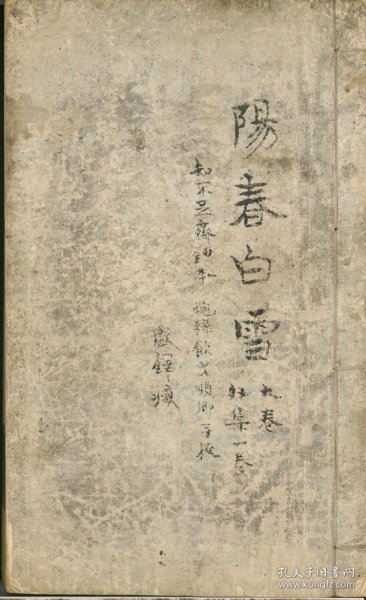 陽春白雪 九卷
外集一卷
知不足齋鈔本 鮑淥飲 戈順卿手校
藏
孔夫子旧书网
www.kongfz.com